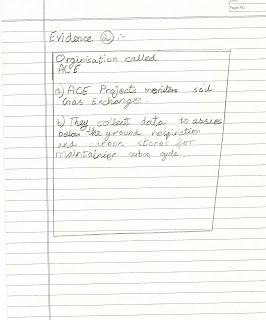 Evidence (2) :-
Orginisation called
ACE
a) ACE Project moniters soil
Gas Exchange.
b) They collect data to assess
below the ground respiration
and carbon stores for
maintaining carbon cycle.